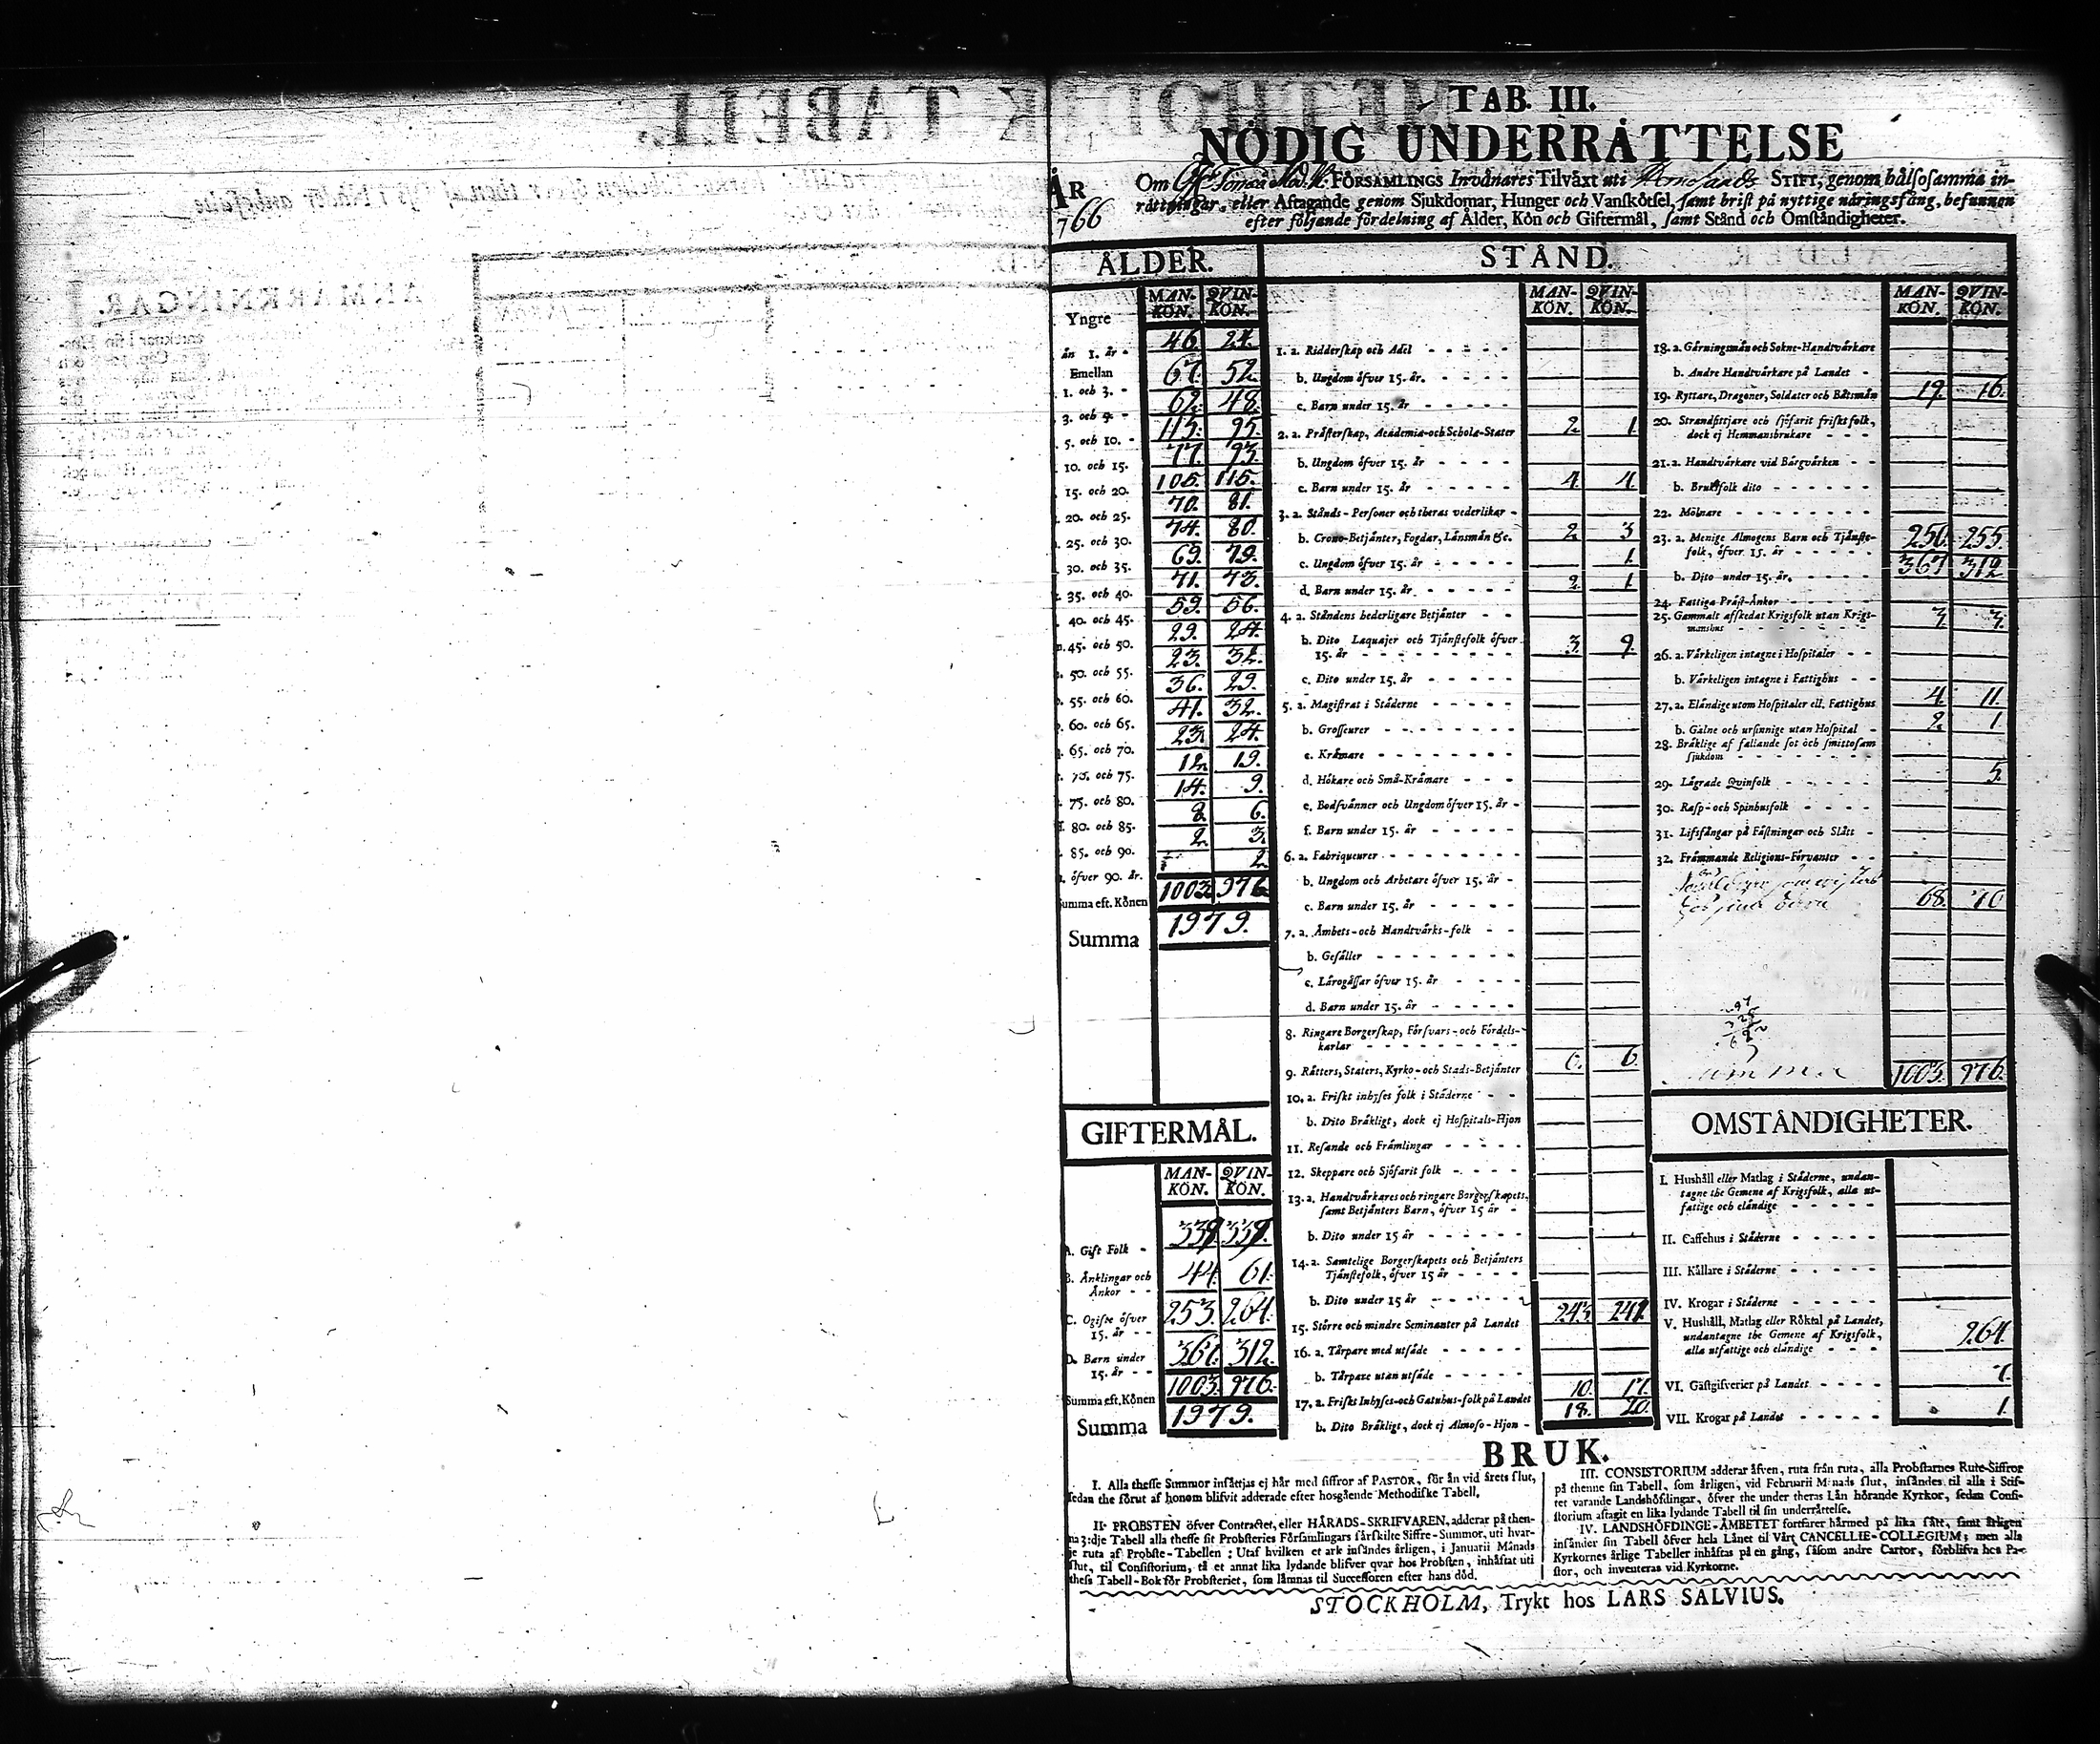 TAB. III.
NÖDIG UNDERRÄTTELSE
ÅR 766
Om FÖRSAMLINGS Invånares Tilväxt uti STIFT, genom hälsosamma in-
rättningar, eller Aftagande genom Sjukdomar, Hunger och Vanskötsel, samt brist på nyttige näringsfång, befunnen
efter följande fördelning af Ålder, Kön och Giftermål, samt Stånd och Omständigheter.
ÅLDER.
MAN-KÖN. QVIN-KÖN.
Yngre
än 1. år - 46. 24.
Emellan
1. och 3. - 67. 52.
3. och 5. - 62. 48.
5. och 10. - 113. 95.
10. och 15. 77. 93.
15. och 20. 105. 115.
20. och 25. 70. 81.
25. och 30. 74. 80.
30. och 35. 69. 79.
35. och 40. 71. 73.
40. och 45. 59. 56.
45. och 50. 29. 24.
50. och 55. 23. 32.
55. och 60. 36. 29.
60. och 65. 41. 32.
65. och 70. 23. 24.
70. och 75. 12. 19.
75. och 80. 14. 9.
80. och 85. 8. 6.
85. och 90. 2. 3.
öfver 90. år. 2.
Summa eft. Könen 1003. 976.
Summa 1979.
GIFTERMÅL.
MAN-KÖN. QVIN-KÖN.
A. Gift Folk - 339. 339.
B. Änklingar och
Änkor - - 44. 61.
C. Ogifte öfver
15. år - - 253. 264.
D. Barn under
15. år - - 367. 312.
Summa eft. Könen 1003. 976.
Summa 1979.
STÅND.
MAN-KÖN. QVIN-KÖN.
1. a. Ridderskap och Adel
b. Ungdom öfver 15. år.
c. Barn under 15. år
2. a. Prästerskap, Academia- och Schola-Stater 2. 1.
b. Ungdom öfver 15. år
c. Barn under 15. år 4. 4.
3. a. Stånds-Personer och theras vederlikar
b. Crono-Betjänter, Fogdar, Länsmän &c. 2. 3.
c. Ungdom öfver 15. år 1.
d. Barn under 15. år 2. 1.
4. a. Ståndens hederligare Betjänter
b. Dito Laquajer och Tjänstefolk öfver
15. år 3. 9.
c. Dito under 15. år
5. a. Magistrat i Städerne
b. Grosseurer
c. Krämare
d. Hökare och Små-Krämare
e. Bodsvänner och Ungdom öfver 15. år
f. Barn under 15. år
6. a. Fabriqueurer
b. Ungdom och Arbetare öfver 15. år
c. Barn under 15. år
7. a. Ämbets- och Handtvärks-folk
b. Gesäller
c. Lärogåssar öfver 15. år
d. Barn under 15. år
8. Ringare Borgerskap, Försvars- och Fördels-
karlar
9. Rätters, Staters, Kyrko- och Stads-Betjänter 6. 6.
10. a. Friskt inhyses folk i Städerne
b. Dito Bräkligt, dock ej Hospitals-Hjon
11. Resande och Främlingar
12. Skeppare och Sjöfarit folk
13. a. Handtvärkares och ringare Borgerskapets,
samt Betjänters Barn, öfver 15 år
b. Dito under 15 år
14. a. Samtelige Borgerskapets och Betjänters
Tjänstefolk, öfver 15 år
b. Dito under 15 år
15. Större och mindre Hemmanter på Landet 243. 242.
16. a. Tårpare med utsäde
b. Tårpare utan utsäde
17. a. Friskt Inhyses- och Gatuhus-folk på Landet 10. 17.
b. Dito Bräkligt, dock ej Almoso-Hjon 18. 20.
MAN-KÖN. QVIN-KÖN.
18. a. Gärningsmän och Sokne-Handtvärkare
b. Andre Handtvärkare på Landet
19. Ryttare, Dragoner, Soldater och Båtsmän 19. 16.
20. Strandsittjare och sjöfarit friskt folk,
dock ej Hemmansbrukare
21. a. Handtvärkare vid Bärgvärken
b. Bruksfolk dito
22. Mölnare
23. a. Menige Almogens Barn och Tjänste-
folk, öfver 15. år 250. 255.
b. Dito under 15. år. 367. 312.
24. Fattiga Präst-Änkor
25. Gammalt afskedat Krigsfolk utan Krigs-
manshus 3. 3.
26. a. Värkeligen intagne i Hospitaler
b. Värkeligen intagne i Fattighus
27. a. Eländige utom Hospitaler ell. Fattighus 4. 11.
b. Galne och ursinnige utan Hospital 2. 1.
28. Bräklige af fallande sot och smittosam
sjukdom
29. Lägrade Qvinfolk 5.
30. Rasp- och Spinhusfolk
31. Lifsfångar på Fästningar och Slått
32. Främmande Religions-Förvanter
68. 70.
Summa 1003. 976.
OMSTÄNDIGHETER.
I. Hushåll eller Matlag i Städerne, undan-
tagne the Gemene af Krigsfolk, alla ut-
fattige och eländige
II. Caffehus i Städerne
III. Källare i Städerne
IV. Krogar i Städerne
V. Hushåll, Matlag eller Röktal på Landet,
undantagne the Gemene af Krigsfolk,
alla utfattige och eländige 264.
VI. Gästgifverier på Landet
VII. Krogar på Landet 1.
BRUK.
I. Alla thesse Summor insättjas ej här med siffror af PASTOR, för än vid årets slut,
sedan the förut af honom blifvit adderade efter hosgående Methodiske Tabell.
II. PROBSTEN öfver Contractet, eller HÄRADS-SKRIFVAREN, adderar på then-
na 3:dje Tabell alla thesse sit Probsteries Församlingars särskilte Siffre-Summor, uti hvar-
je ruta af Probste-Tabellen; Utaf hvilken et ark insändes årligen, i Januarii Månads
slut, til Consistorium, tå et annat lika lydande blifver qvar hos Probsten, inhäftat uti
thess Tabell-Bok för Probsteriet, som lämnas til Successoren efter hans död.
III. CONSISTORIUM adderar äfven, ruta från ruta, alla Probstarnes Rute-Siffror
på thenne sin Tabell, som årligen, vid Februarii Månads slut, insändes til alla i Stif-
tet varande Landshöfdingar, öfver the under theras Län hörande Kyrkor, sedan Consi-
storium aftagit en lika lydande Tabell til sin underrättelse.
IV. LANDSHÖFDINGE-ÄMBETET fortfarer härmed på lika sätt, samt årligen
insänder sin Tabell öfver hela Länet til Vårt CANCELLIE-COLLEGIUM; men alla
Kyrkornes årlige Tabeller inhäftas på en gång, såsom andre Cartor, förblifva hos Pa-
stor, och inventeras vid Kyrkorne.
STOCKHOLM, Trykt hos LARS SALVIUS.